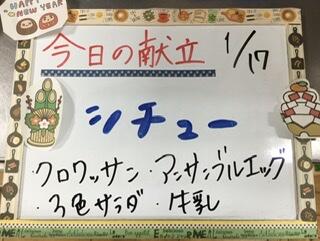 HAPPY NEW YEAR
今日の献立 1/17
シチュー
・クロワッサン ・アンサンブルエッグ
・3色サラダ ・牛乳